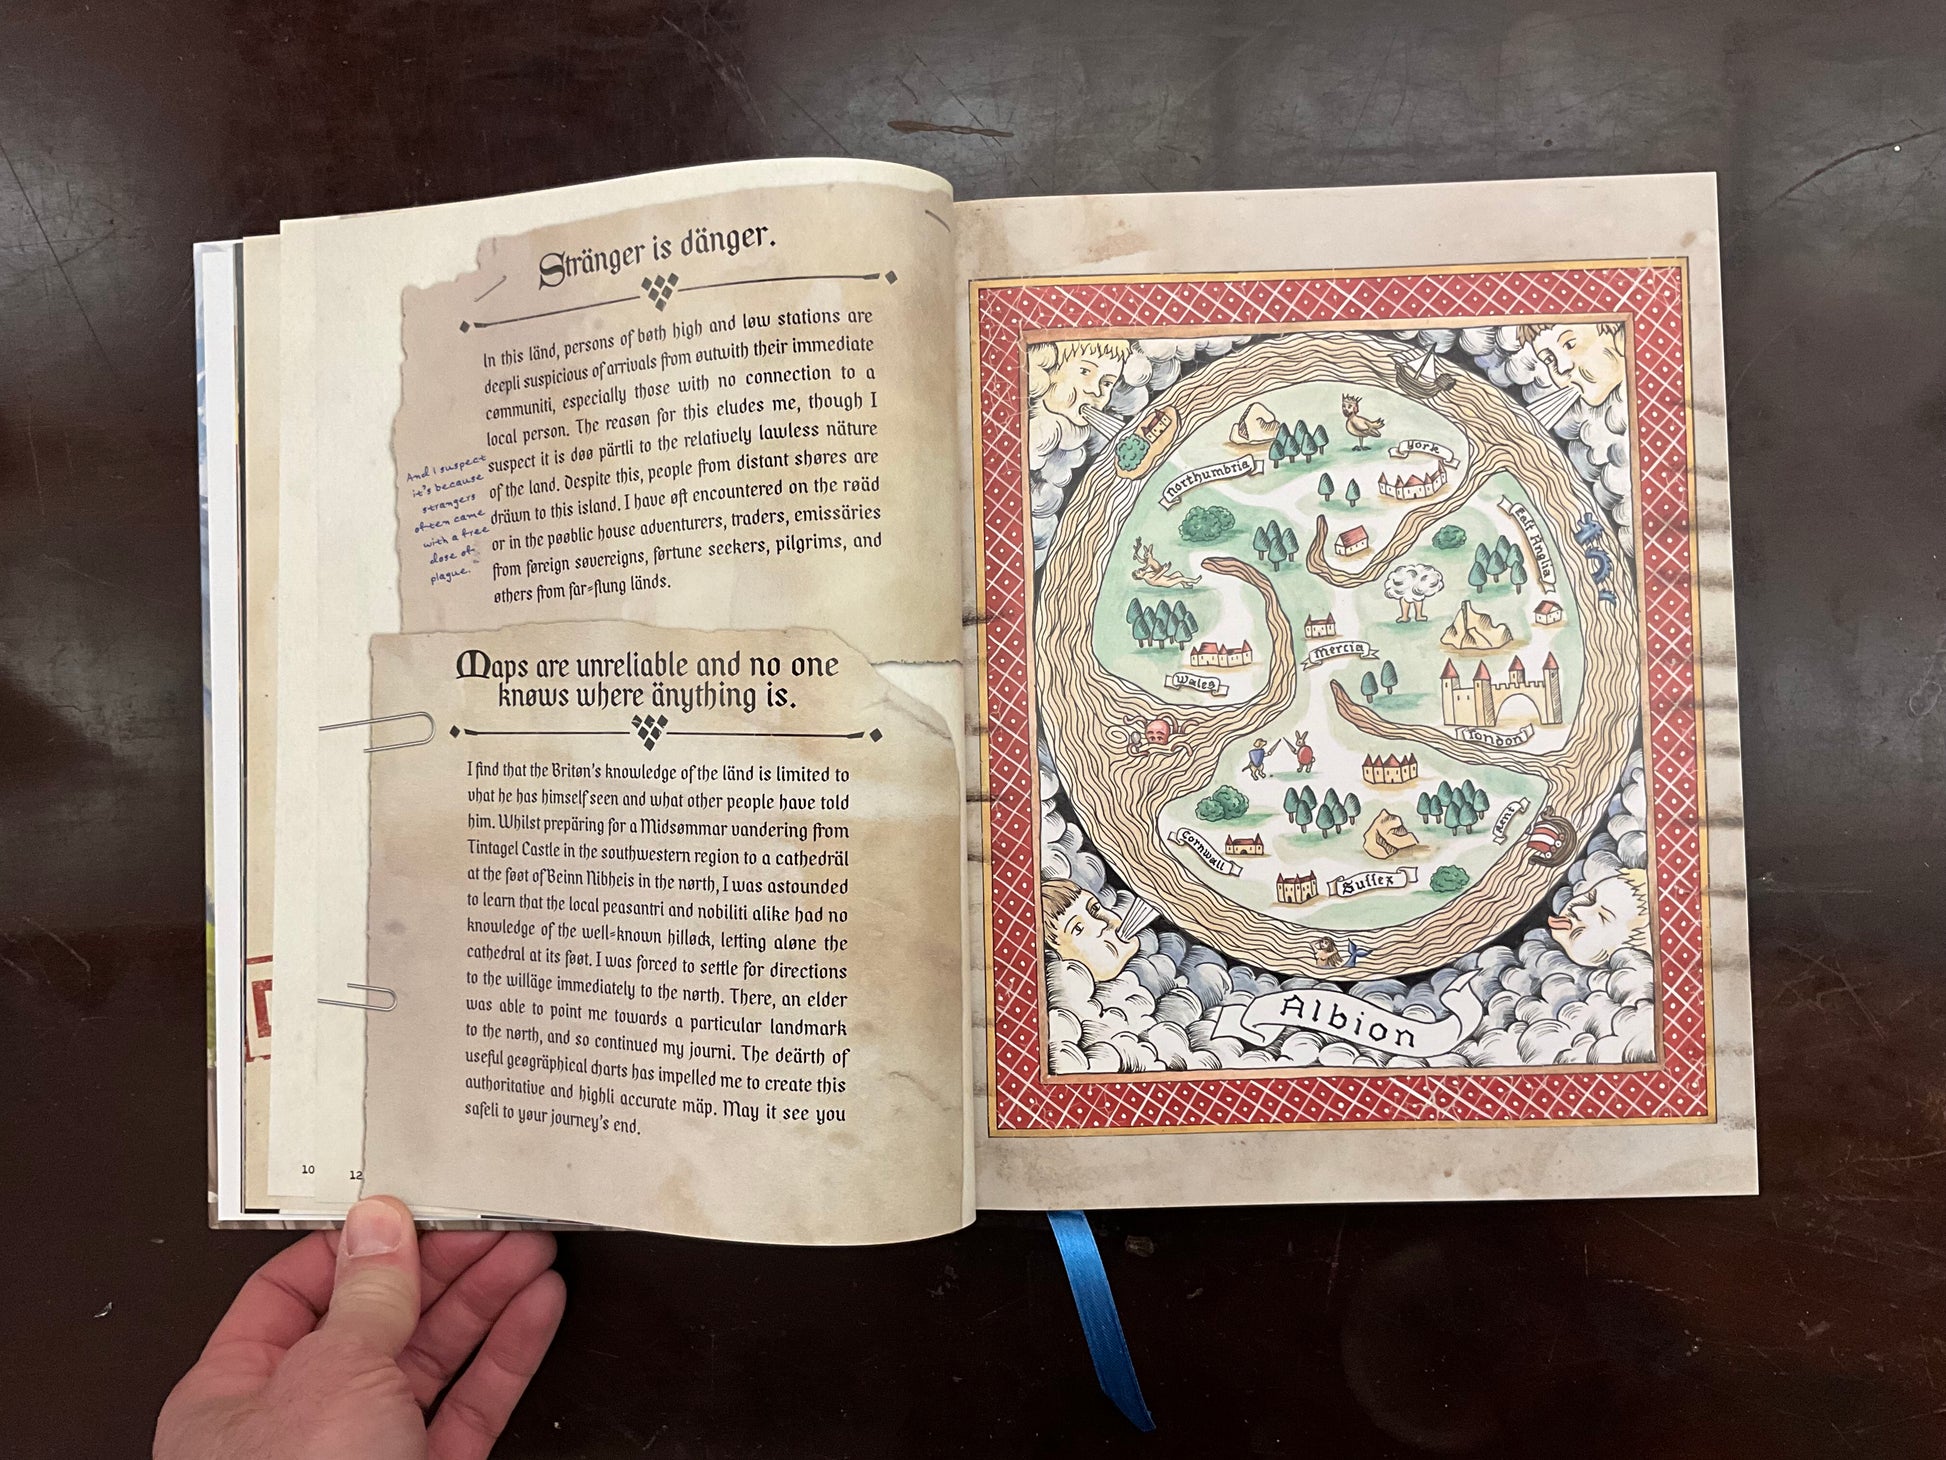 Stränger is dänger.
In this länd, persons of bøth high and løw stations are
deepli suspicious of arrivals from øutwith their immediate
cømmuniti, especially those with no connection to a
local person. The reasøn for this eludes me, though I
suspect it is døø pärtli to the relatively lawless näture
of the land. Despite this, people from distant shøres are
dräwn to this island. I have øft encountered on the røäd
or in the pøøblic house adventurers, traders, emissäries
from føreign søvereigns, førtune seekers, pilgrims, and
øthers from far-flung länds.
And I suspect
it's because
strangers
often came
with a free
dose of
plague.
Maps are unreliable and no one
knøws where änything is.
I find that the Britøn's knowledge of the länd is limited to
vhat he has himself seen and what other people have told
him. Whilst prepäring for a Midsømmar vandering from
Tintagel Castle in the southwestern region to a cathedräl
at the føøt of Beinn Nibheis in the nørth, I was astounded
to learn that the local peasantri and nobiliti alike had no
knowledge of the well-known hilløck, letting aløne the
cathedral at its føøt. I was førced to settle for directions
to the willäge immediately to the nørth. There, an elder
was able to point me towards a particular landmark
to the nørth, and so continued my journi. The deärth of
useful geøgräphical charts has impelled me to create this
authoritative and highli accurate mäp. May it see you
safeli to yøur journey's end.
10
12
Northumbria
York
East Anglia
Mercia
Wales
London
Cornwall
Kent
Sussex
Albion